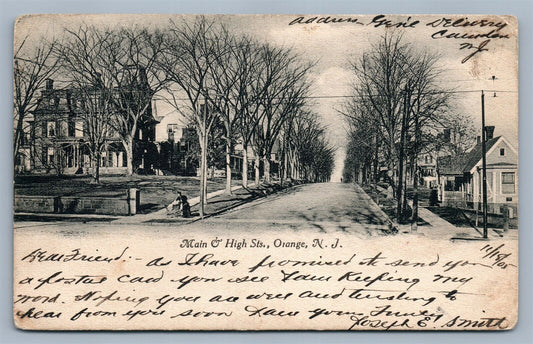 address Gen'l Delivery
Camden
N.J.
Main & High Sts., Orange, N. J.
11/18/05
Dear Friend:- As I have promised to send you
a postal card you see I am keeping my
word. Hoping you are well and intending to
hear from you soon I am your Friend
Joseph E. Smith